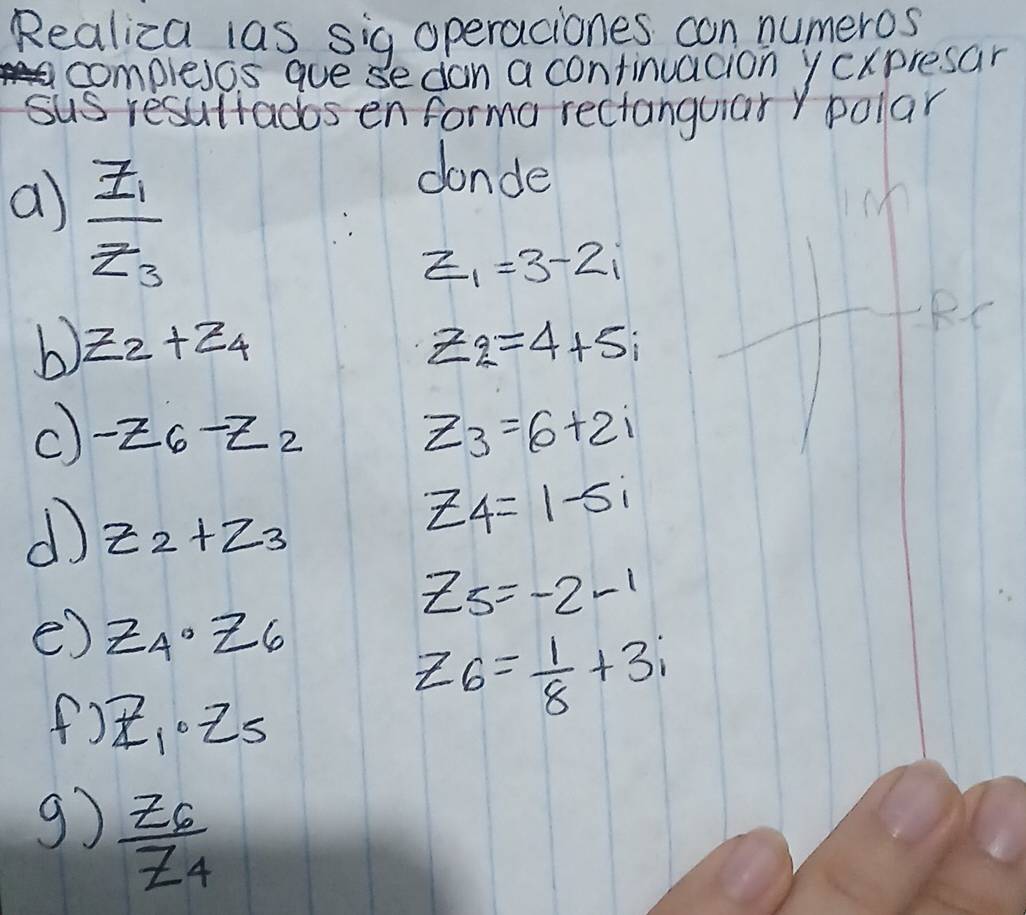 Realiza las sig operaciones con numeros
complejos que se dan a continuación y expresar
sus resultados en forma rectangular y polar
donde
a) Z₁/Z₃
Z₁ = 3-2i
b) Z₂ + Z₄
Z₂ = 4+5i
c) -Z₆ - Z₂
Z₃ = 6+2i
d) Z₂ + Z₃
Z₄ = 1-5i
e) Z₄ · Z₆
Z₅ = -2-i
f) Z₁ · Z₅
Z₆ = 1/8 + 3i
g) Z₆/Z₄
Im
Re